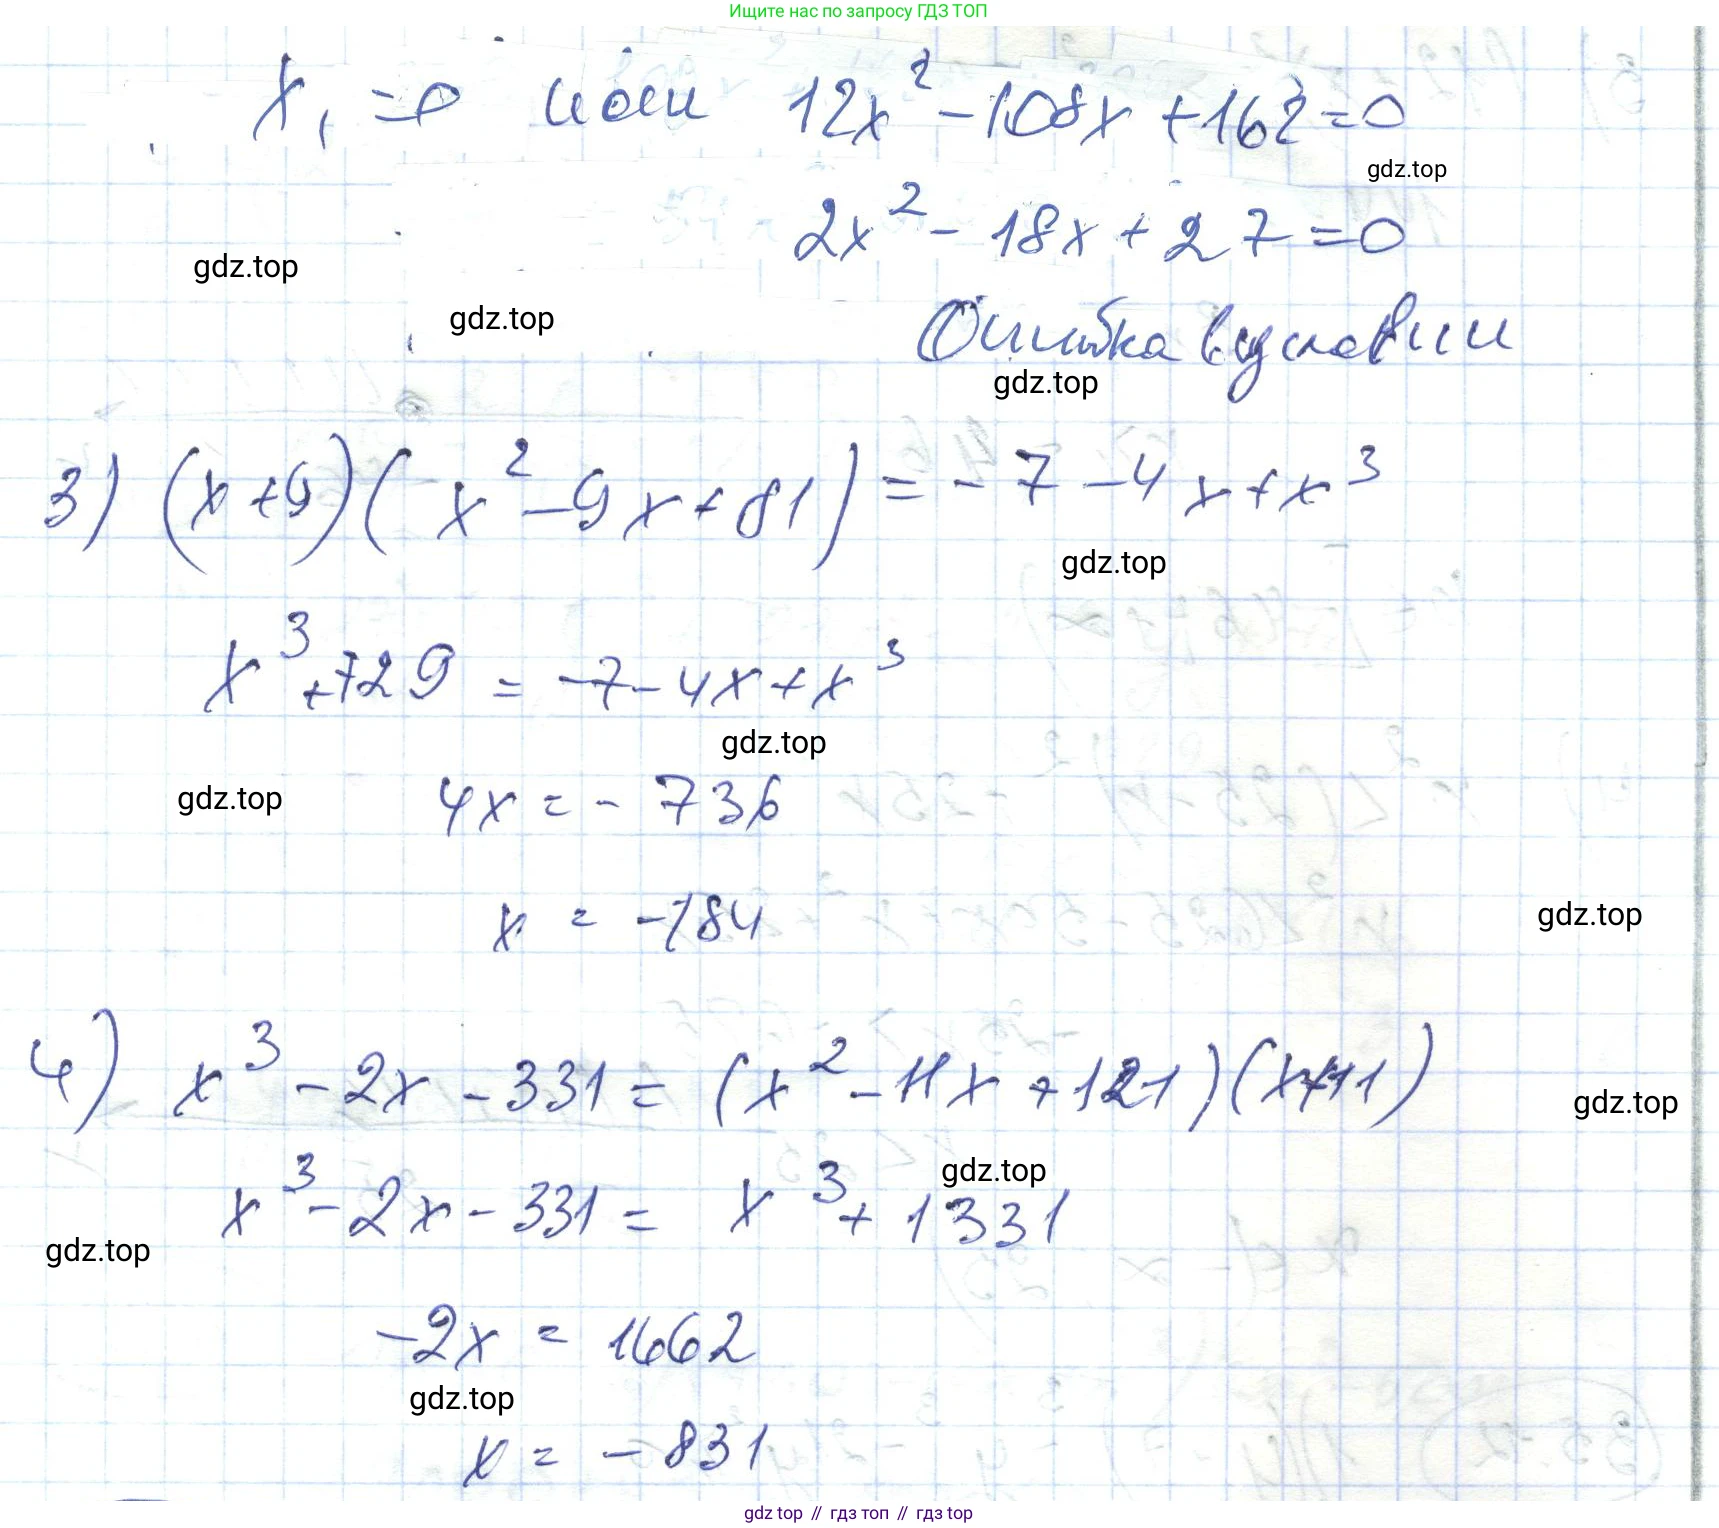 Ищите нас по запросу ГДЗ ТОП
x₁ = 0 или 12x² - 108x + 162 = 0
gdz.top
2x² - 18x + 27 = 0
gdz.top
gdz.top
Ошибка в условии
gdz.top
3) (x + 9)(x² - 9x + 81) = - 7 - 4x + x³
gdz.top
x³ + 729 = -7 - 4x + x³
gdz.top
gdz.top
4x = - 736
x = -184
gdz.top
4) x³ - 2x - 331 = (x² - 11x + 121)(x + 11)
gdz.top
gdz.top
x³ - 2x - 331 = x³ + 1331
gdz.top
-2x = 1662
gdz.top
x = - 831
gdz top // гдз топ // гдз top